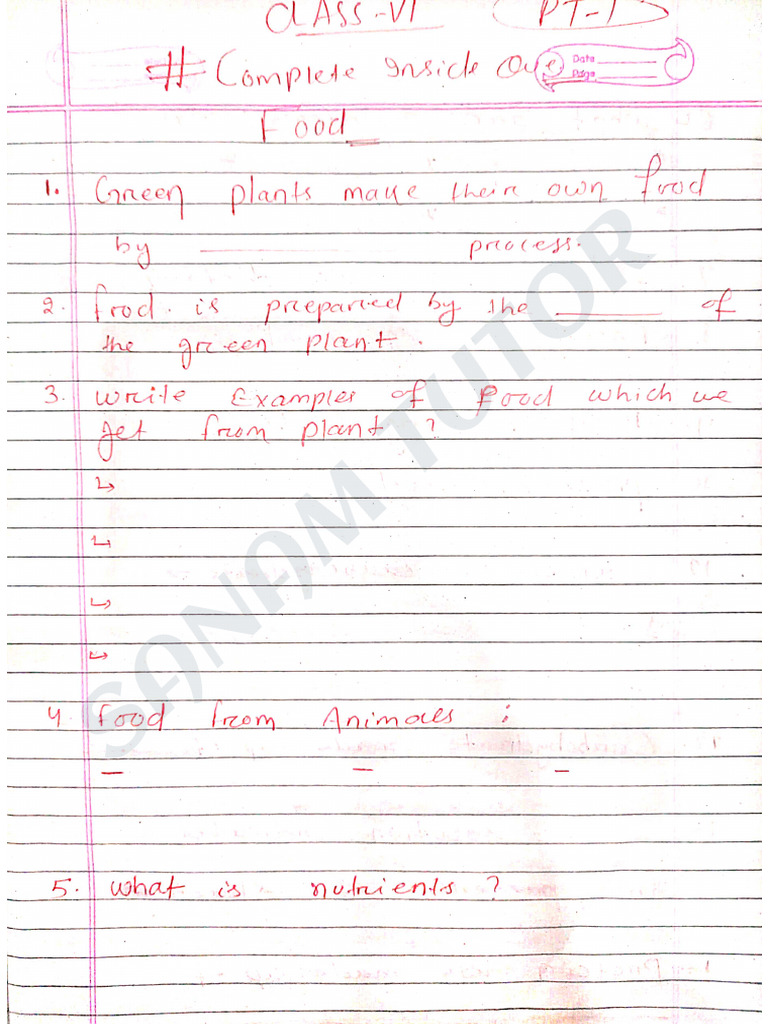 CLASS-VI PT-1
# Complete Inside Out
Date
Page
Food
1. Green plants make their own food
by ________ process.
2. food. is prepared by the ______ of
the green plant.
3. write Examples of Food which we
get from plant ?
↳
↳
↳
↳
4. food from Animals :
– – –
5. what is nutrients ?
SANAM TUTOR